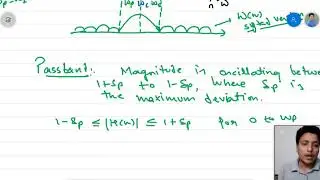 ωp ωc ωs
ω
W(ω)
Passband:. Magnitude is oscillating between
1+δp to 1-δp, where δp is
the maximum deviation.
1-δp ≤ |H(ω)| ≤ 1+δp for 0 to ωp